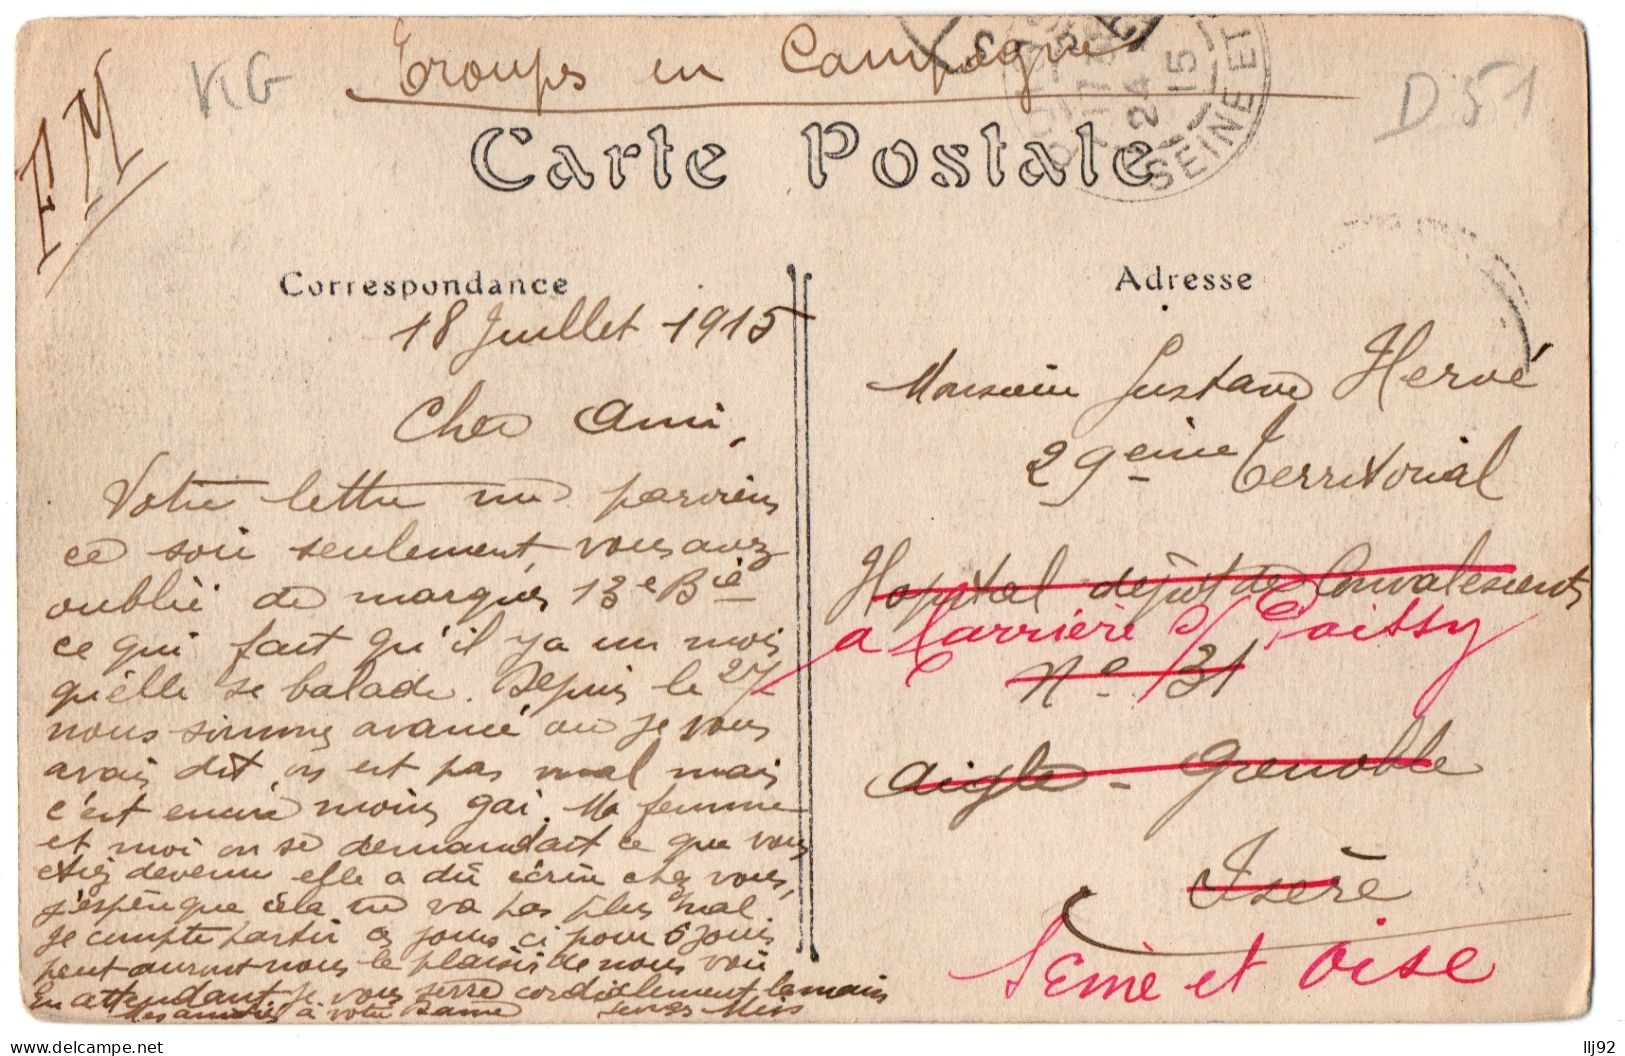 FM
KG
Troupes en Campagne
D51
24
15
SEINE ET
Carte Postale
Correspondance
18 Juillet 1915
Cher Ami,
Votre lettre me parvien
ce soir seulement, vous avez
oublié de marqués 13e Bie
ce qui fait qu'il y a un mois
qu'elle se balade. Depuis le 27
nous sommes avancé ou je vous
avais dit, on est pas mal mais
c'est encore moins gai. Ma femme
et moi on se demandait ce que vous
étiez devenu elle a dû écrire chez vous,
j'espère que cela ne va pas plus mal
Je compte partir ces jours ci pour 6 jours
peut auront nous le plaisir de nous voir
En attendant je vous serre cordialement la main
Mes amitiés à votre Dame
Adresse
Monsieur Gustave Hervé
29eme Territorial
Hopital dépot de Convalescents
a Carrière s/ Poissy
No 31
Aigle - Grenoble
Isère
Seine et Oise
llj92